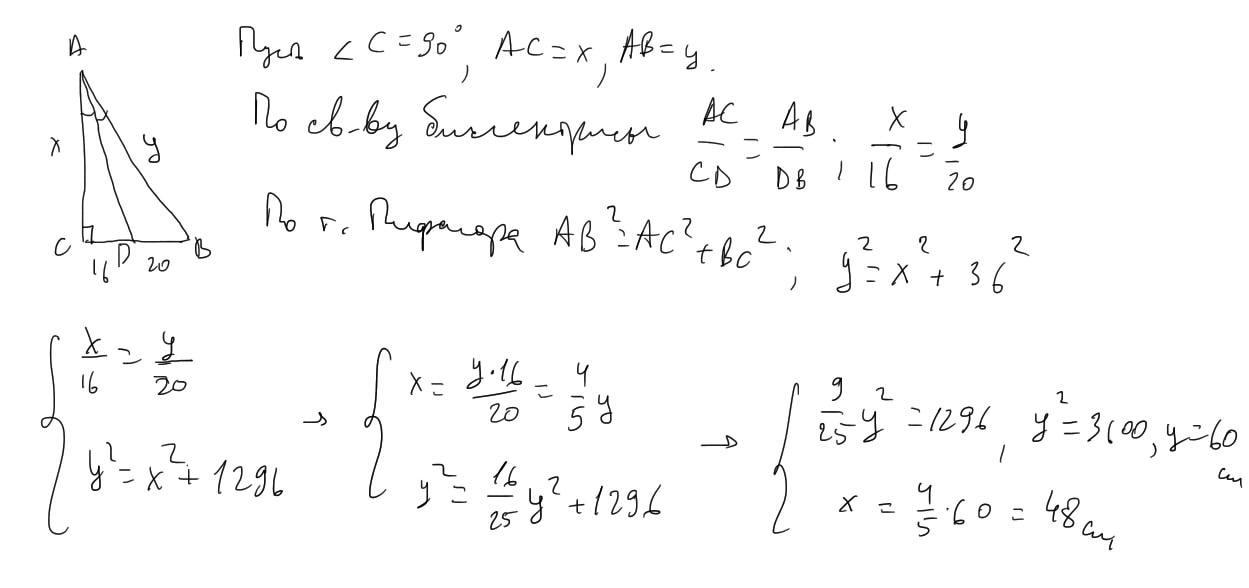 A
x
y
C
16
D
20
B
Пусть ∠C = 90°, AC = x, AB = y.
По св-ву биссектрисы AC/CD = AB/DB; x/16 = y/20
По т. Пифагора AB² = AC² + BC²; y² = x² + 36²
{ x/16 = y/20
y² = x² + 1296
→ { x = y·16/20 = 4/5 y
y² = 16/25 y² + 1296
→ { 9/25 y² = 1296, y² = 3600, y = 60 см
x = 4/5 · 60 = 48 см